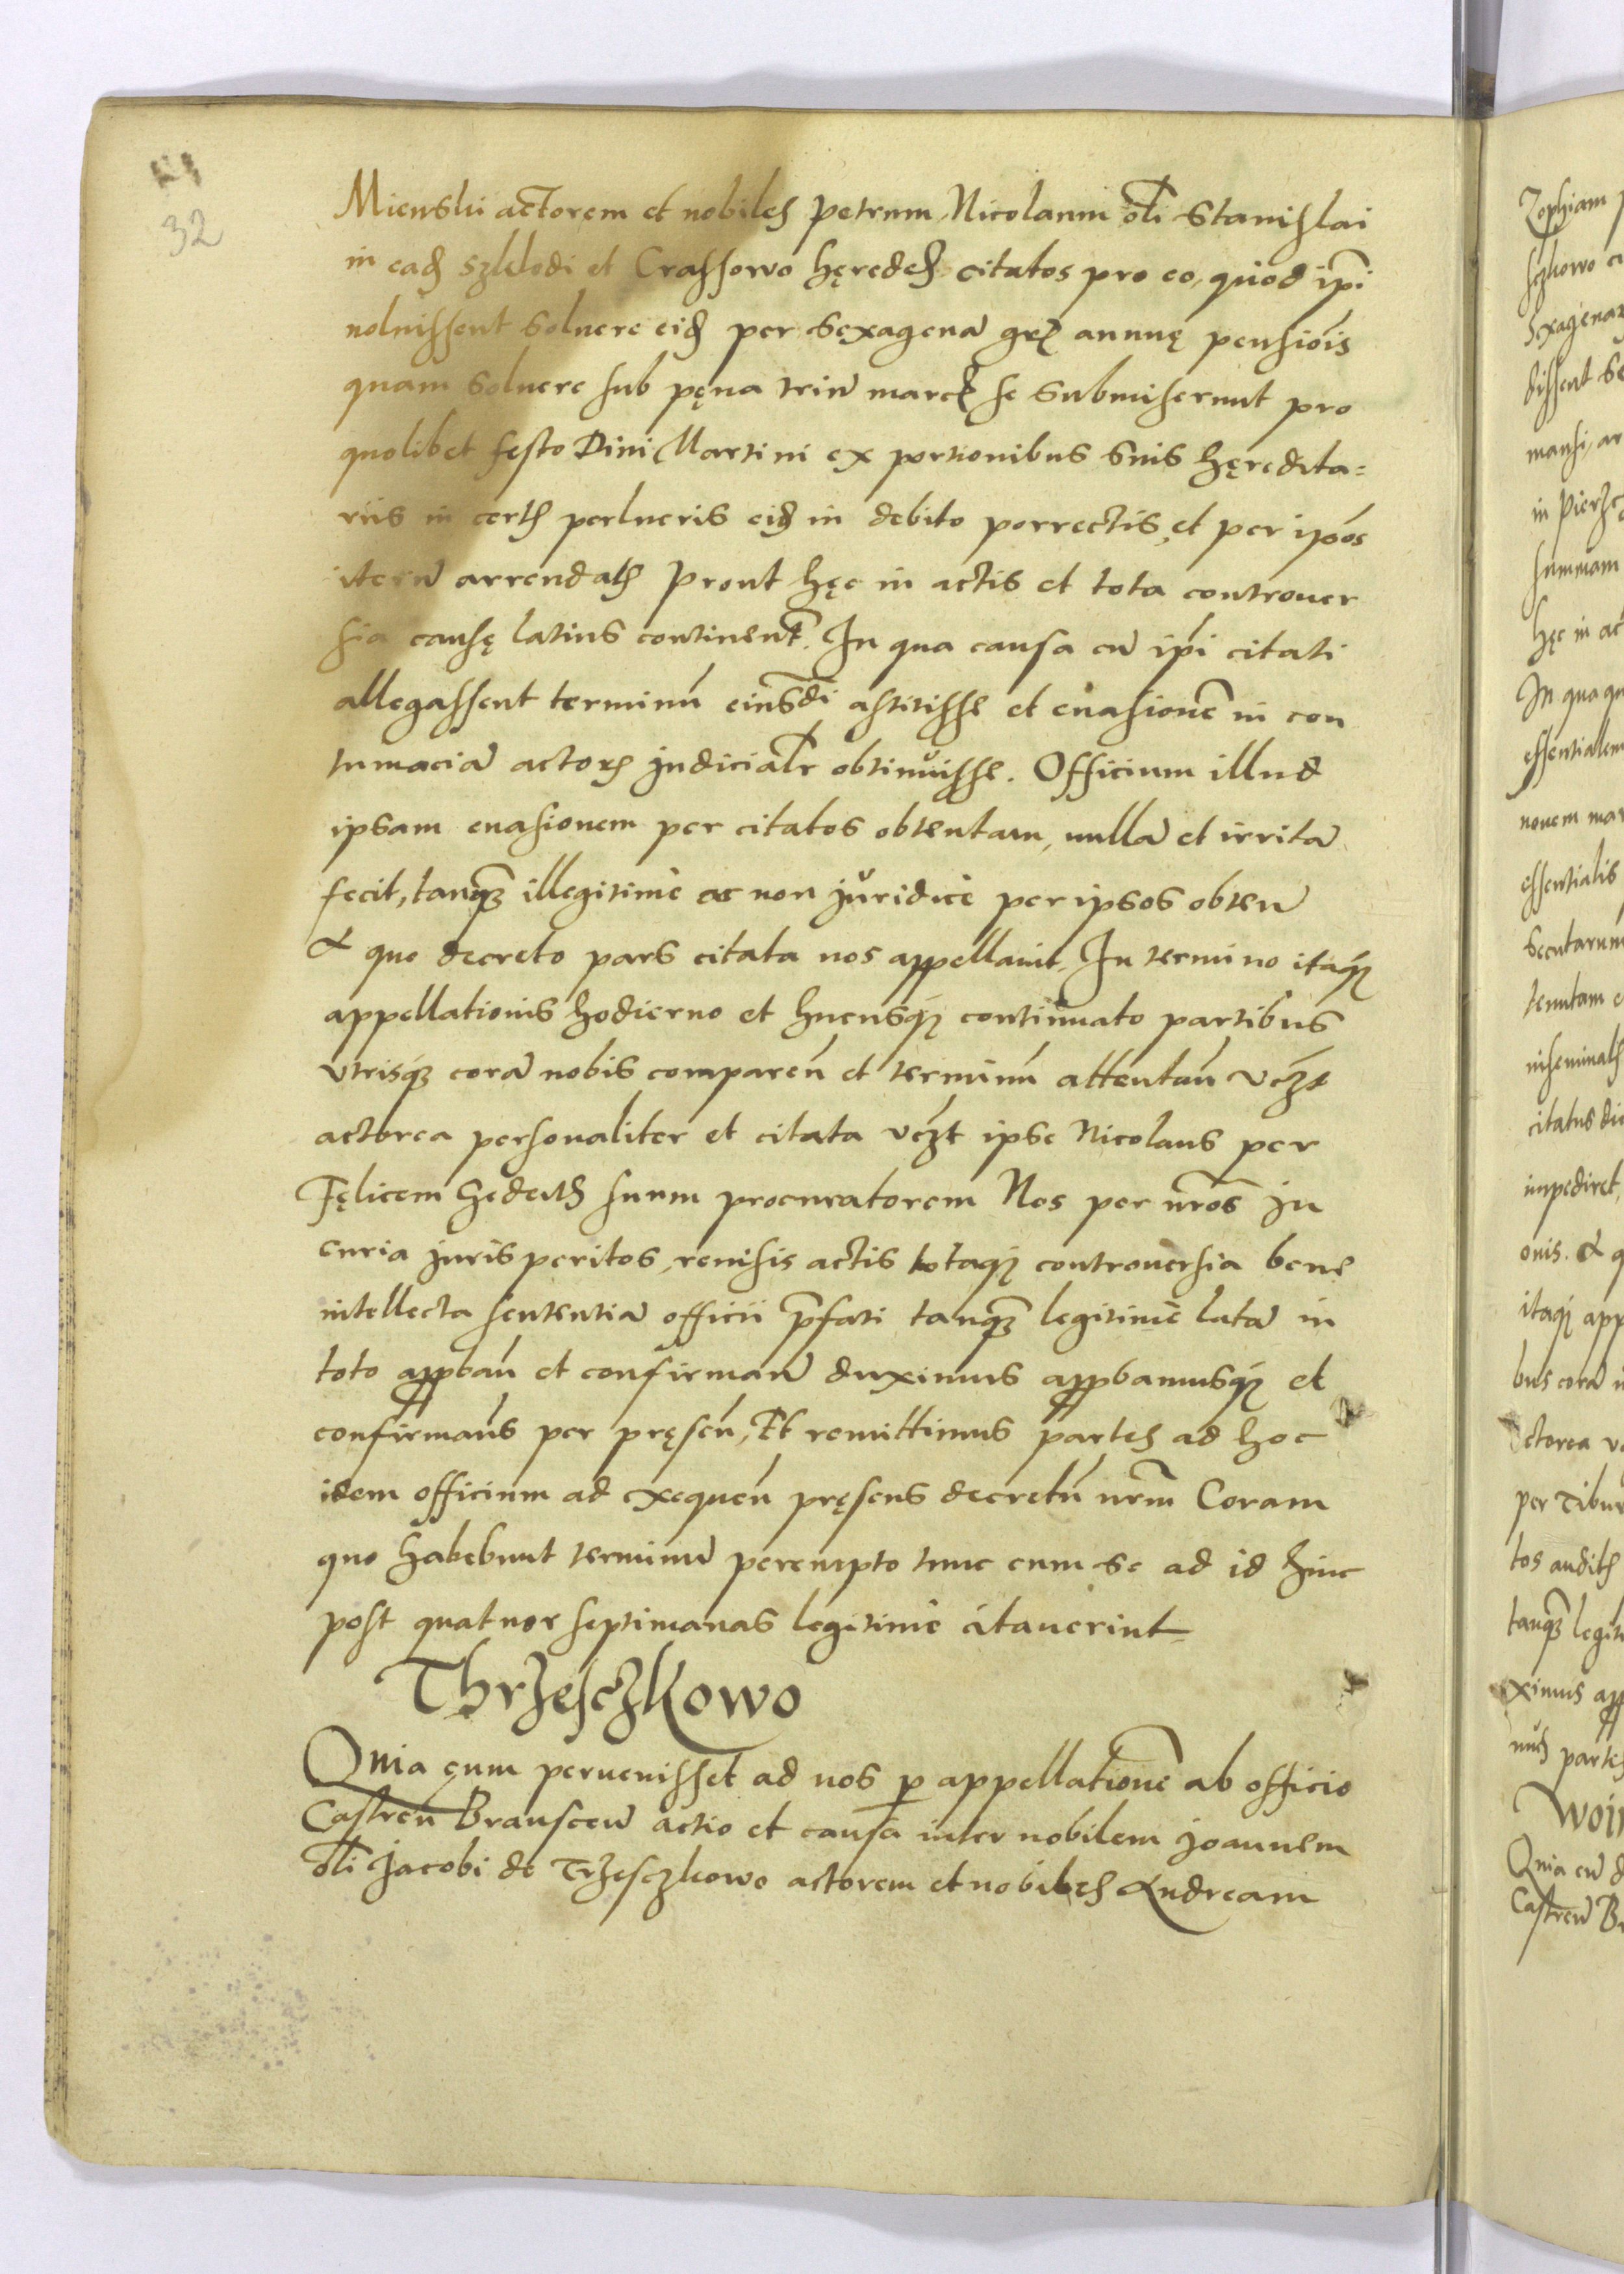 32
Mienski actorem et nobiles Petrum, Nicolaum oli Stanislai
in ead Szklodi et Crassowo hęredes citatos pro eo, quod ipi
noluissent soluere eid per sexagena grl annuę pensiois
quam soluere sub pęna trin marcl se submiserunt pro
quolibet festo Diui Martini ex portionibus suis hęredita=
riis in certis eid in debito porrectis, et per ipos
iteru arrendatis Prout hęc in actis et tota controuer
sia causę latius continent. In qua causa cu ipi citati
allegassent terminu eiusdi astitisse et euasione in con
tumacia actoris judicialr obtinuisse. Officium illud
ipsam euasionem per citatos obtentam, nulla et irrita
fecit, tanq illegitime ac non juridice per ipsos obten
A quo decreto pars citata nos appellauit. In termino itaq
appellationis hodierno et hucusq continuato partibus
vtrisq cora nobis comparen et terminu attentan vczt
actorea personaliter et citata vczt ipse Nicolaus per
Fęlicem suum procuratorem Nos per nros in
curia juris peritos, reuisis actis totaq controuersia bene
intellecta sententia officii pfati tanq legitime lata in
toto appban et confirman duximus appbamusq et
confirmaus per pręsen, Et remittimus partes ad hoc
idem officium ad exequen pręsens decretu nrm Coram
quo habebunt terminu perempto tunc cum se ad id hinc
post quatuor septimanas legitime citauerint
Thrzesczkowo
Quia cum peruenisset ad nos p appellatione ab officio
Castren Branscen actio et causa inter nobilem Joannem
oli Jacobi de Trzesczkowo actorem et nobiles Andream
Zophiam
sczkowo
Sexagenar
dissent
mansi, ar
in
summam
hęc in ac
In qua qu
essentialem
nouem mar
essentialis
secutarum
tenutam
citatus
impediret,
onis. A q
itaq app
bus cora
actorea
per
tos auditis
tanq legiti
ximus app
partes
Quia cu
Castren Br